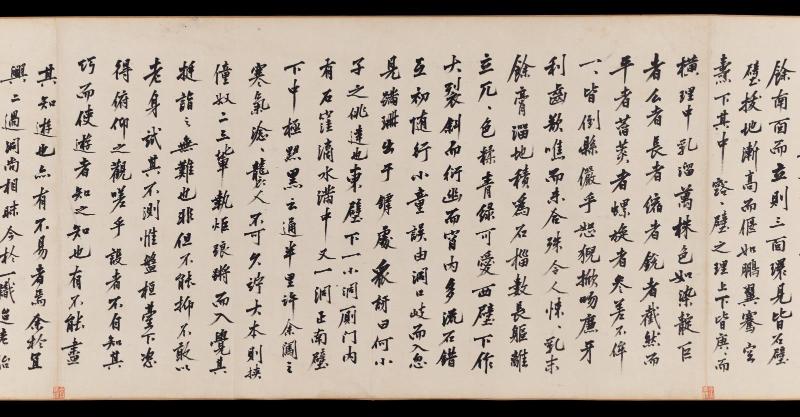 餘南面而立則三面環見皆石壁
壁拔地漸高而偃如鵬翼騫空
橐下其中壁之理上下皆庚而
橫理中乳溜萬株色如染靛巨
者么者長者縮者銳者截然而
平者菡萏者螺旋者參差不侔
一一皆倒縣儼乎怒猊掀吻廉牙
利齒欺噍而未合殊令人悚乳末
餘膏溜地積為石榴數長軀離
立兀色糅青綠可愛西壁下作
大裂斜而衍幽而窅內多流石錯
互初隨行小童誤由洞口歧而入忽
見蹣珊出于罅處眾訝曰何小
子之佻達也東壁下一小洞門內
有石窪滴水滿中又一洞正南壁
下中極點黑云通半里許余闖之
寒氣淰人不可久許大本則挾
僮奴二三輩執炬琅蹡而入覺其
挺詣無難也非但不能抑不敢以
老身試其不測惟盤桓臺下恣
得俯仰之觀嗟乎設者不自知其
巧而使遊者知之知也有不能盡
其知遊也亦有不易者焉余於宜
興二過洞尚相昧今於一識造老治